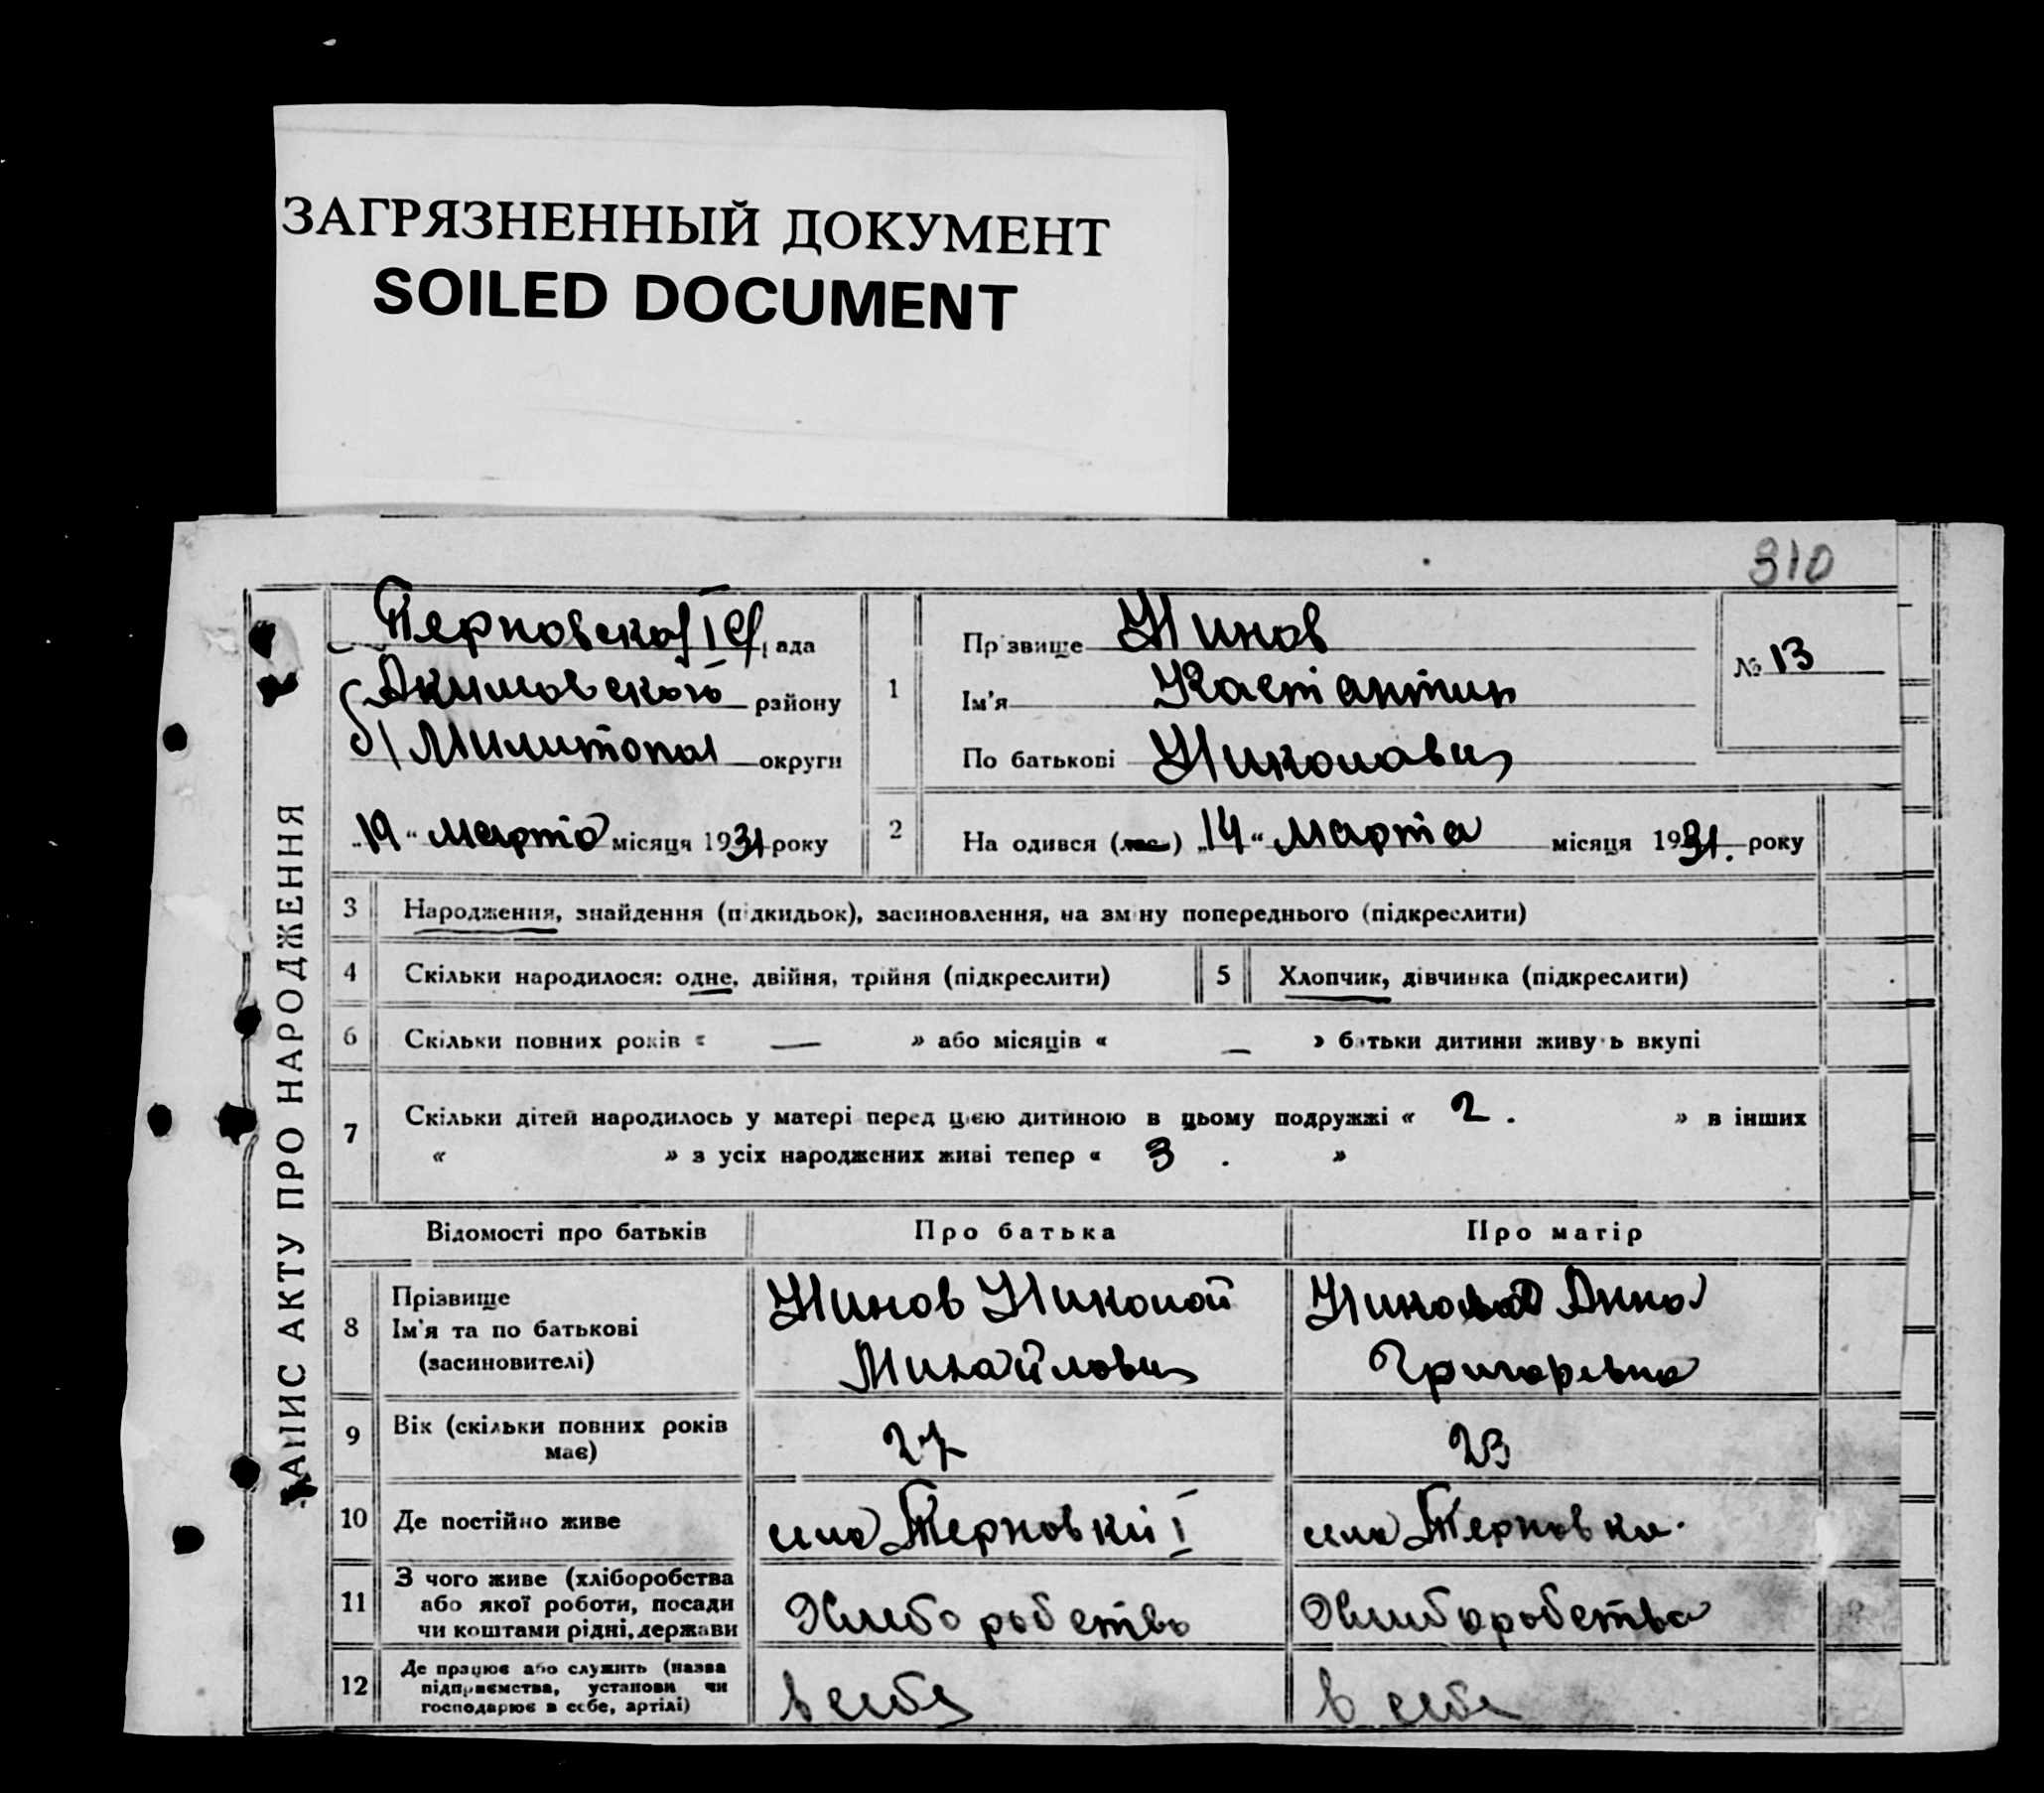 ЗАГРЯЗНЕННЫЙ ДОКУМЕНТ
SOILED DOCUMENT
310
ЗАПИС АКТУ ПРО НАРОДЖЕННЯ
Терновской I ада
Акимовского району
Милитопол округи
„19“ марта місяця 1931 року
1
Прізвище Нинов
Ім'я Кастантин
По батькові Николавич
№ 13
2 На одився (лас.) „14“ марта місяця 1931. року
3 Народження, знайдення (підкидьок), засиновлення, на зміну попереднього (підкреслити)
4 Скільки народилося: одне, двійня, трійня (підкреслити) 5 Хлопчик, дівчинка (підкреслити)
6 Скільки повних років « — » або місяців « — » батьки дитини живуть вкупі
7 Скільки дітей народилось у матері перед цією дитиною в цьому подружжі « 2. » в інших
« » з усіх народжених живі тепер « 3 . »
Відомості про батьків Про батька Про матір
8 Прізвище
Ім'я та по батькові
(засиновителі)
Нинов Николай
Михайлович
Нинова Анна
Григоревна
9 Вік (скільки повних років
має)
27 23
10 Де постійно живе село Терновки I село Терновки.
11 З чого живе (хліборобства
або якої роботи, посади
чи коштами рідні, держави
Хлиборобство Хлиборобства
12 Де працює або служить (назва
підприємства, установи чи
господарює в себе, артілі)
в себе в себе